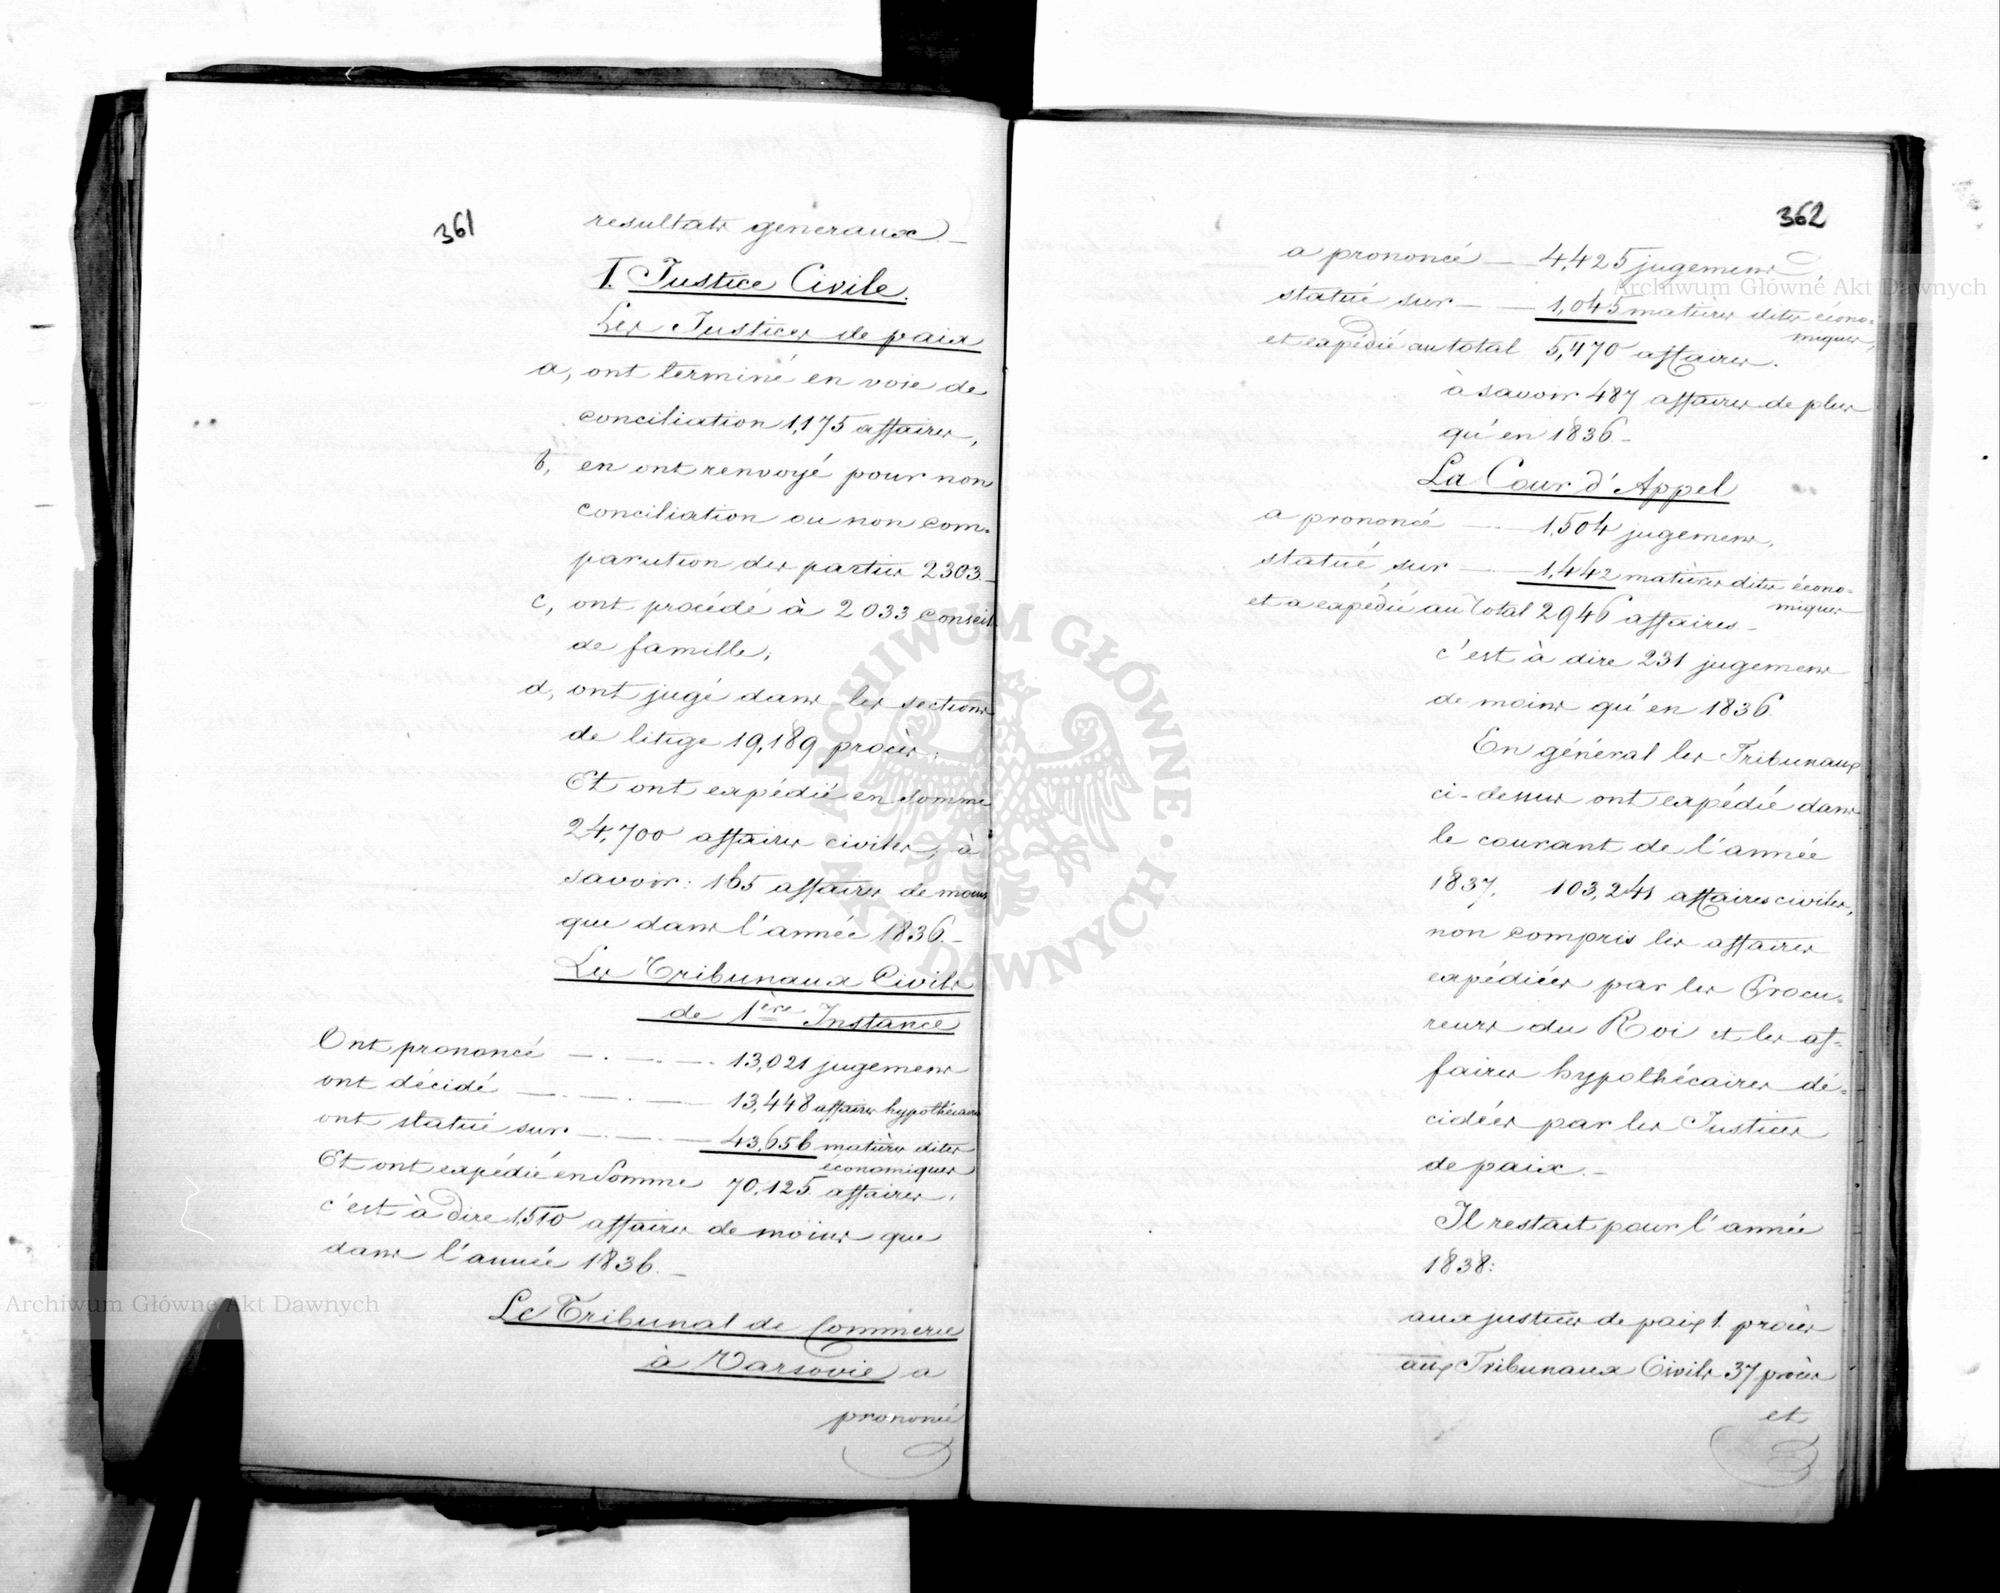 361
resultats generaux. –
I. Justice Civile.
Les Justices de paix
a, ont terminé en voie de
conciliation 1,175 affaires,
b, en ont renvoyé pour non
conciliation ou non com-
parution des parties 2303. –
c, ont procédé à 2033 conseils
de famille,
d, ont jugé dans les sections
de litige 19,189 procès,
Et ont expédié en somme
24,700 affaires civiles, à
savoir: 165 affaires de moins
que dans l'année 1836. –
Les Tribunaux Civils
de 1ère Instance
Ont prononcé — . — . — . 13,021 jugemens
ont décidé — . — . — 13,448 affaires hypothécaires
ont statué sur — . — . — 43,656 matières dites
économiques
Et ont expédié en somme 70,125 affaires,
c'est à dire 1,510 affaires de moins que
dans l'année 1836. –
Le Tribunal de Commerce
à Varsovie a
prononcé
362
a prononcé — 4,425 jugemens
statué sur — — 1,045 matières dites écono-
miques,
et expédié au total 5,470 affaires.
à savoir 487 affaires de plus
qu'en 1836 –
La Cour d'Appel
a prononcé — . — 1,504 jugemens,
statué sur — . — 1,442 matières dites écono-
miques
et a expédié au total 2946 affaires –
c'est à dire 231 jugemens
de moins qu'en 1836.
En général les Tribunaux
ci-dessus ont expédié dans
le courant de l'année
1837, 103,241 affaires civiles,
non compris les affaires
expédiées par les Procu-
reurs du Roi et les af-
faires hypothécaires dé-
cidées par les Justices
de paix. –
Il restait pour l'année
1838:
aux justices de paix 1 procès
aux Tribunaux Civils 37 procès
et
Archiwum Główne Akt Dawnych
Archiwum Główne Akt Dawnych
ARCHIWUM GŁÓWNE AKT DAWNYCH